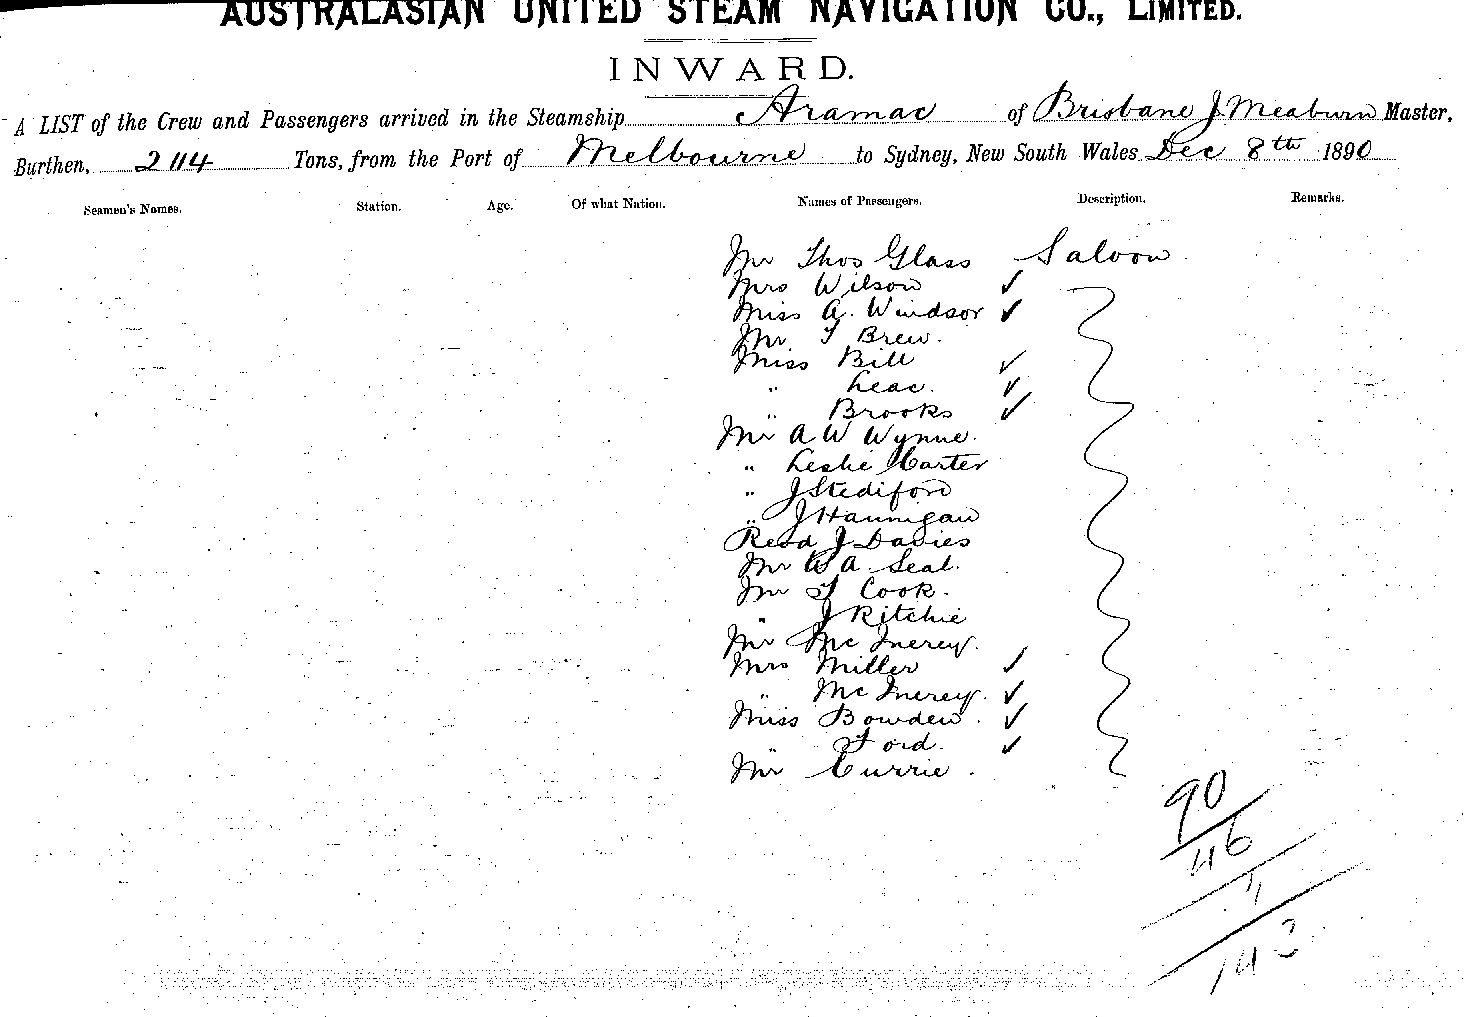 AUSTRALASIAN UNITED STEAM NAVIGATION CO., LIMITED.
INWARD.
A LIST of the Crew and Passengers arrived in the Steamship Aramac of Brisbane J. Meaburn Master,
Burthen, 2114 Tons, from the Port of Melbourne to Sydney, New South Wales Dec 8th 1890
Seamen's Names. Station. Age. Of what Nation. Names of Passengers. Description. Remarks.
Mr Thos Glass Saloon
Mrs Wilson ✓
Miss A. Windsor ✓
Mr T Brew.
Miss Bill ✓
" Leac. ✓
" Brooks ✓
Mr A W Wynne.
" Leslie Carter
" J Stediford
" J Hannigan
Revd J Davies
Mr W A. Seal.
Mr T Cook.
" J Ritchie
Mr Mc Inerey.
Mrs Miller ✓
" Mc Inerey. ✓
Miss Bowden. ✓
" Ford. ✓
Mr Currie.
90
46
143